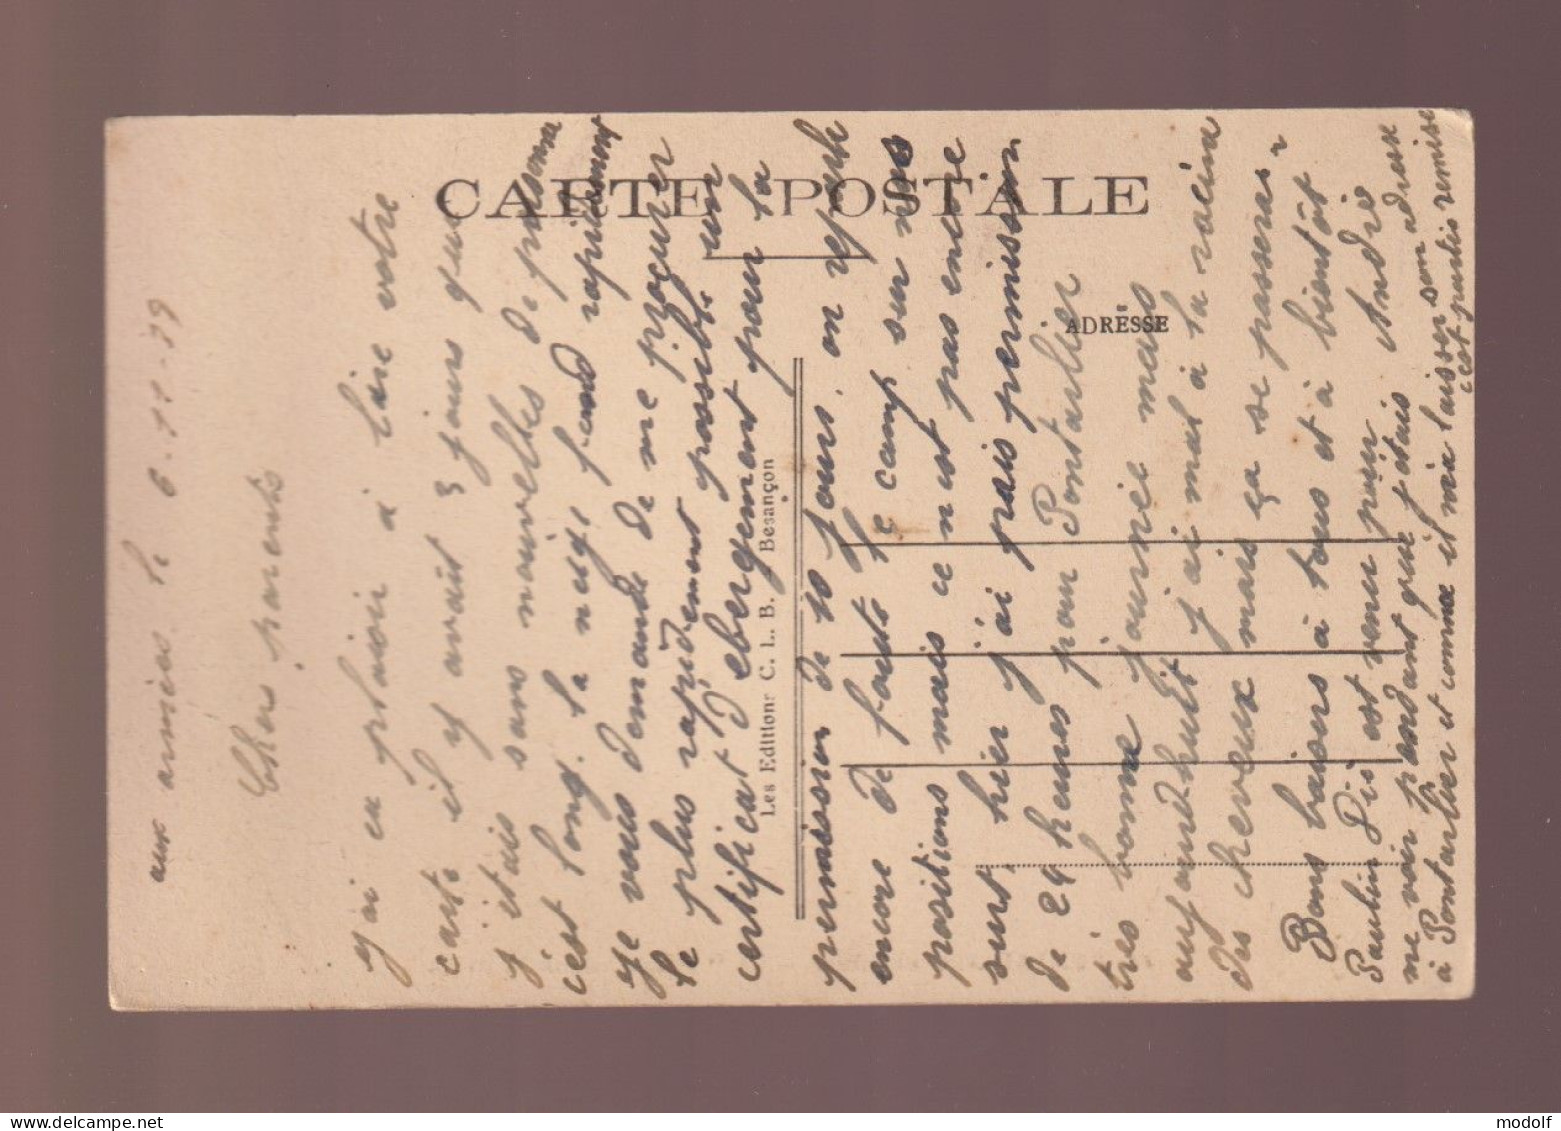 CARTE POSTALE
ADRESSE
Les Editions C. L. B. Besançon
aux armées le 6-11-39
Chers parents
J'ai eu plaisir à lire votre
carte il y avait 3 jours que
j'étais sans nouvelles de personne
c'est long. la neige fond rapidement
Je vous demande de me procurer
le plus rapidement possible un
certificat d'ebergement pour la
permission de 10 jours, on reparle
encore de foute le camp sur nos
positions mais ce n'est pas encore
surt, hier j'ai pris permission
de 24 heures pour Pontarlier
très bonne journée mais
aujourd'hult j'ai mal à la racine
des cheveux mais ça se passera
Bons baisers à tous et à bientôt
André
Paulin Dis est venu pour
me voir pendant que j'étais
à Pontarlier et comme il m'a laisser son adresse
c'est partis remise
modolf